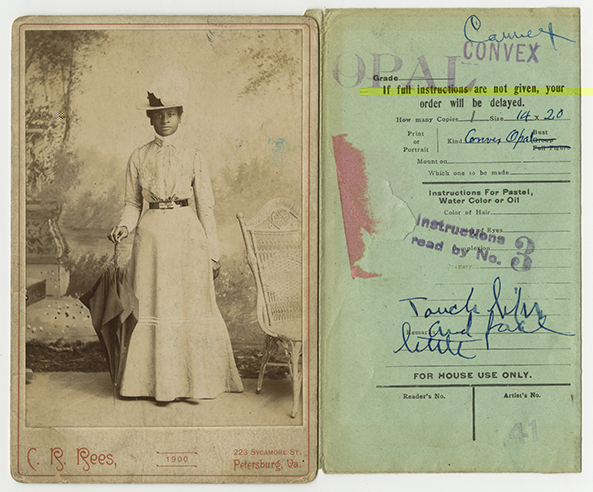 C. R. Rees,
1900
223 Sycamore St.
Petersburg, Va.
Convex
CONVEX
OPAL
Grade
If full instructions are not given, your
order will be delayed.
How many Copies 1 Size 14 x 20
Print
or
Portrait
Kind Convex Opal
Bust
Group
Full Figure
Mount on
Which one to be made
Instructions For Pastel,
Water Color or Oil
Color of Hair
of Eyes
Instructions
read by No. 3
Touch
and
little
FOR HOUSE USE ONLY.
Reader's No.
Artist's No.
41